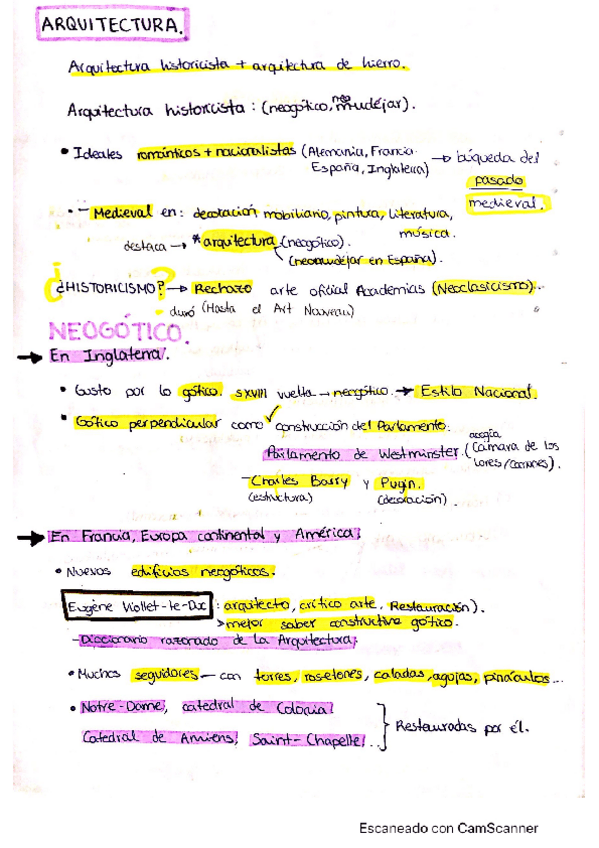 ARQUITECTURA.
Arquitectura historicista + arquitectura de hierro.
Arquitectura historicista : (neogótico, neomudéjar).
• Ideales románticos + nacionalistas (Alemania, Francia España, Inglaterra) → búqueda del pasado medieval.
• - Medieval en: decoración mobiliario, pintura, literatura, música.
destaca → * arquitectura (neogótico).
(neomudéjar en España).
¿HISTORICISMO? → Rechazo arte oficial Academias (Neoclasicismo)..
duró (Hasta el Art Nouveau)
NEOGÓTICO.
→ En Inglaterra.
• Gusto por lo gótico. SXVIII vuelta → neogótico. → Estilo Nacional.
• Gótico perpendicular como construcción del Parlamento:
Parlamento de Westminster. (acogía Cámara de los lores/comunes).
- Charles Barry y Pugin.
(estructura) (decoración).
→ En Francia, Europa continental y América:
• Nuevos edificios neogóticos.
Eugène Viollet-le-Duc : arquitecto, crítico arte, Restauración).
> mejor saber constructivo gótico.
- Diccionario razonado de la Arquitectura;
• Muchos seguidores - con torres, rosetones, caladas, agujas, pináculos...
• Notre-Dame, catedral de Colonia
Catedral de Amiens, Saint-Chapelle...
Restauradas por él.
Escaneado con CamScanner